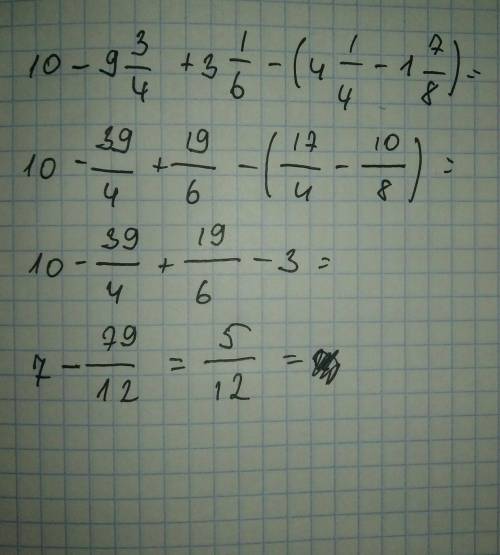 10 - 9 3/4 + 3 1/6 - (4 1/4 - 1 7/8) =
10 - 39/4 + 19/6 - (17/4 - 10/8) =
10 - 39/4 + 19/6 - 3 =
7 - 79/12 = 5/12 =